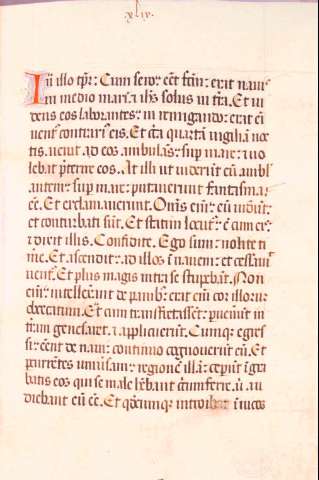 xliv.
In illo tpr: Cum sero eēt fcm: erat nauis
in medio maris ⁊ ihs solus in tra. Et ui
dens eos laborantes in remigando: erat en
uent contrari eis. Et circa quartā uigiliā noc
tis. uenit ad eos ambulās sup mare: ⁊ uo
lebat pterire eos. At illi ut uiderūt eū ambl
antem sup mare: putauerūt fantasma
eēe. Et exclamauerunt. Oms eni eū uiderūt:
et conturbati sūt. Et statim locut ē cum eis
⁊ dixit illis. Confidite. Ego sum: nolite ti
me. Et ascendit ad illos ī nauem: et cessaui
uent. Et plus magis intra se stupebāt. Non
eni intellexerūt de panib: erat eni cor illorum
obcecatum. Et cum transfretassēt: puenerūt in
trām genesaret: ⁊ applicuerūt. Cumq egres
si eēent de naui: continuo cognouerūt eū. Et
pcurrētes uniuersam regionē illā: ceperūt ī gra
batis eos qui se male hēbant circumferre. u. au
diebant eū eē. Et qcumque introibat ī uicos